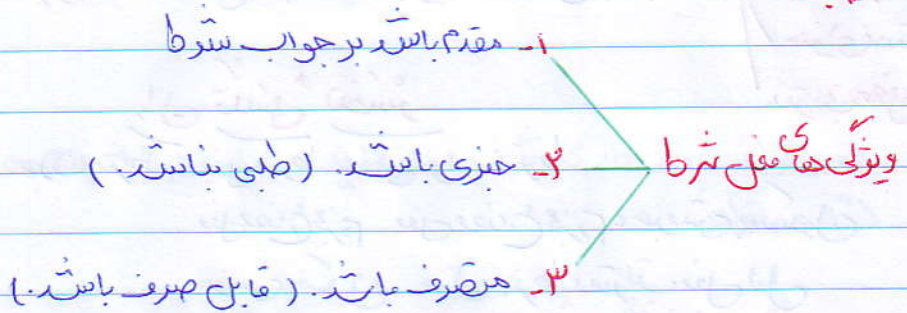 ویژگی های فعل شرط
۱- مقدم باشد بر جواب شرط
۲- خبری باشد. (طلبی نباشد.)
۳- متصرف باشد. (قابل صرف باشد.)